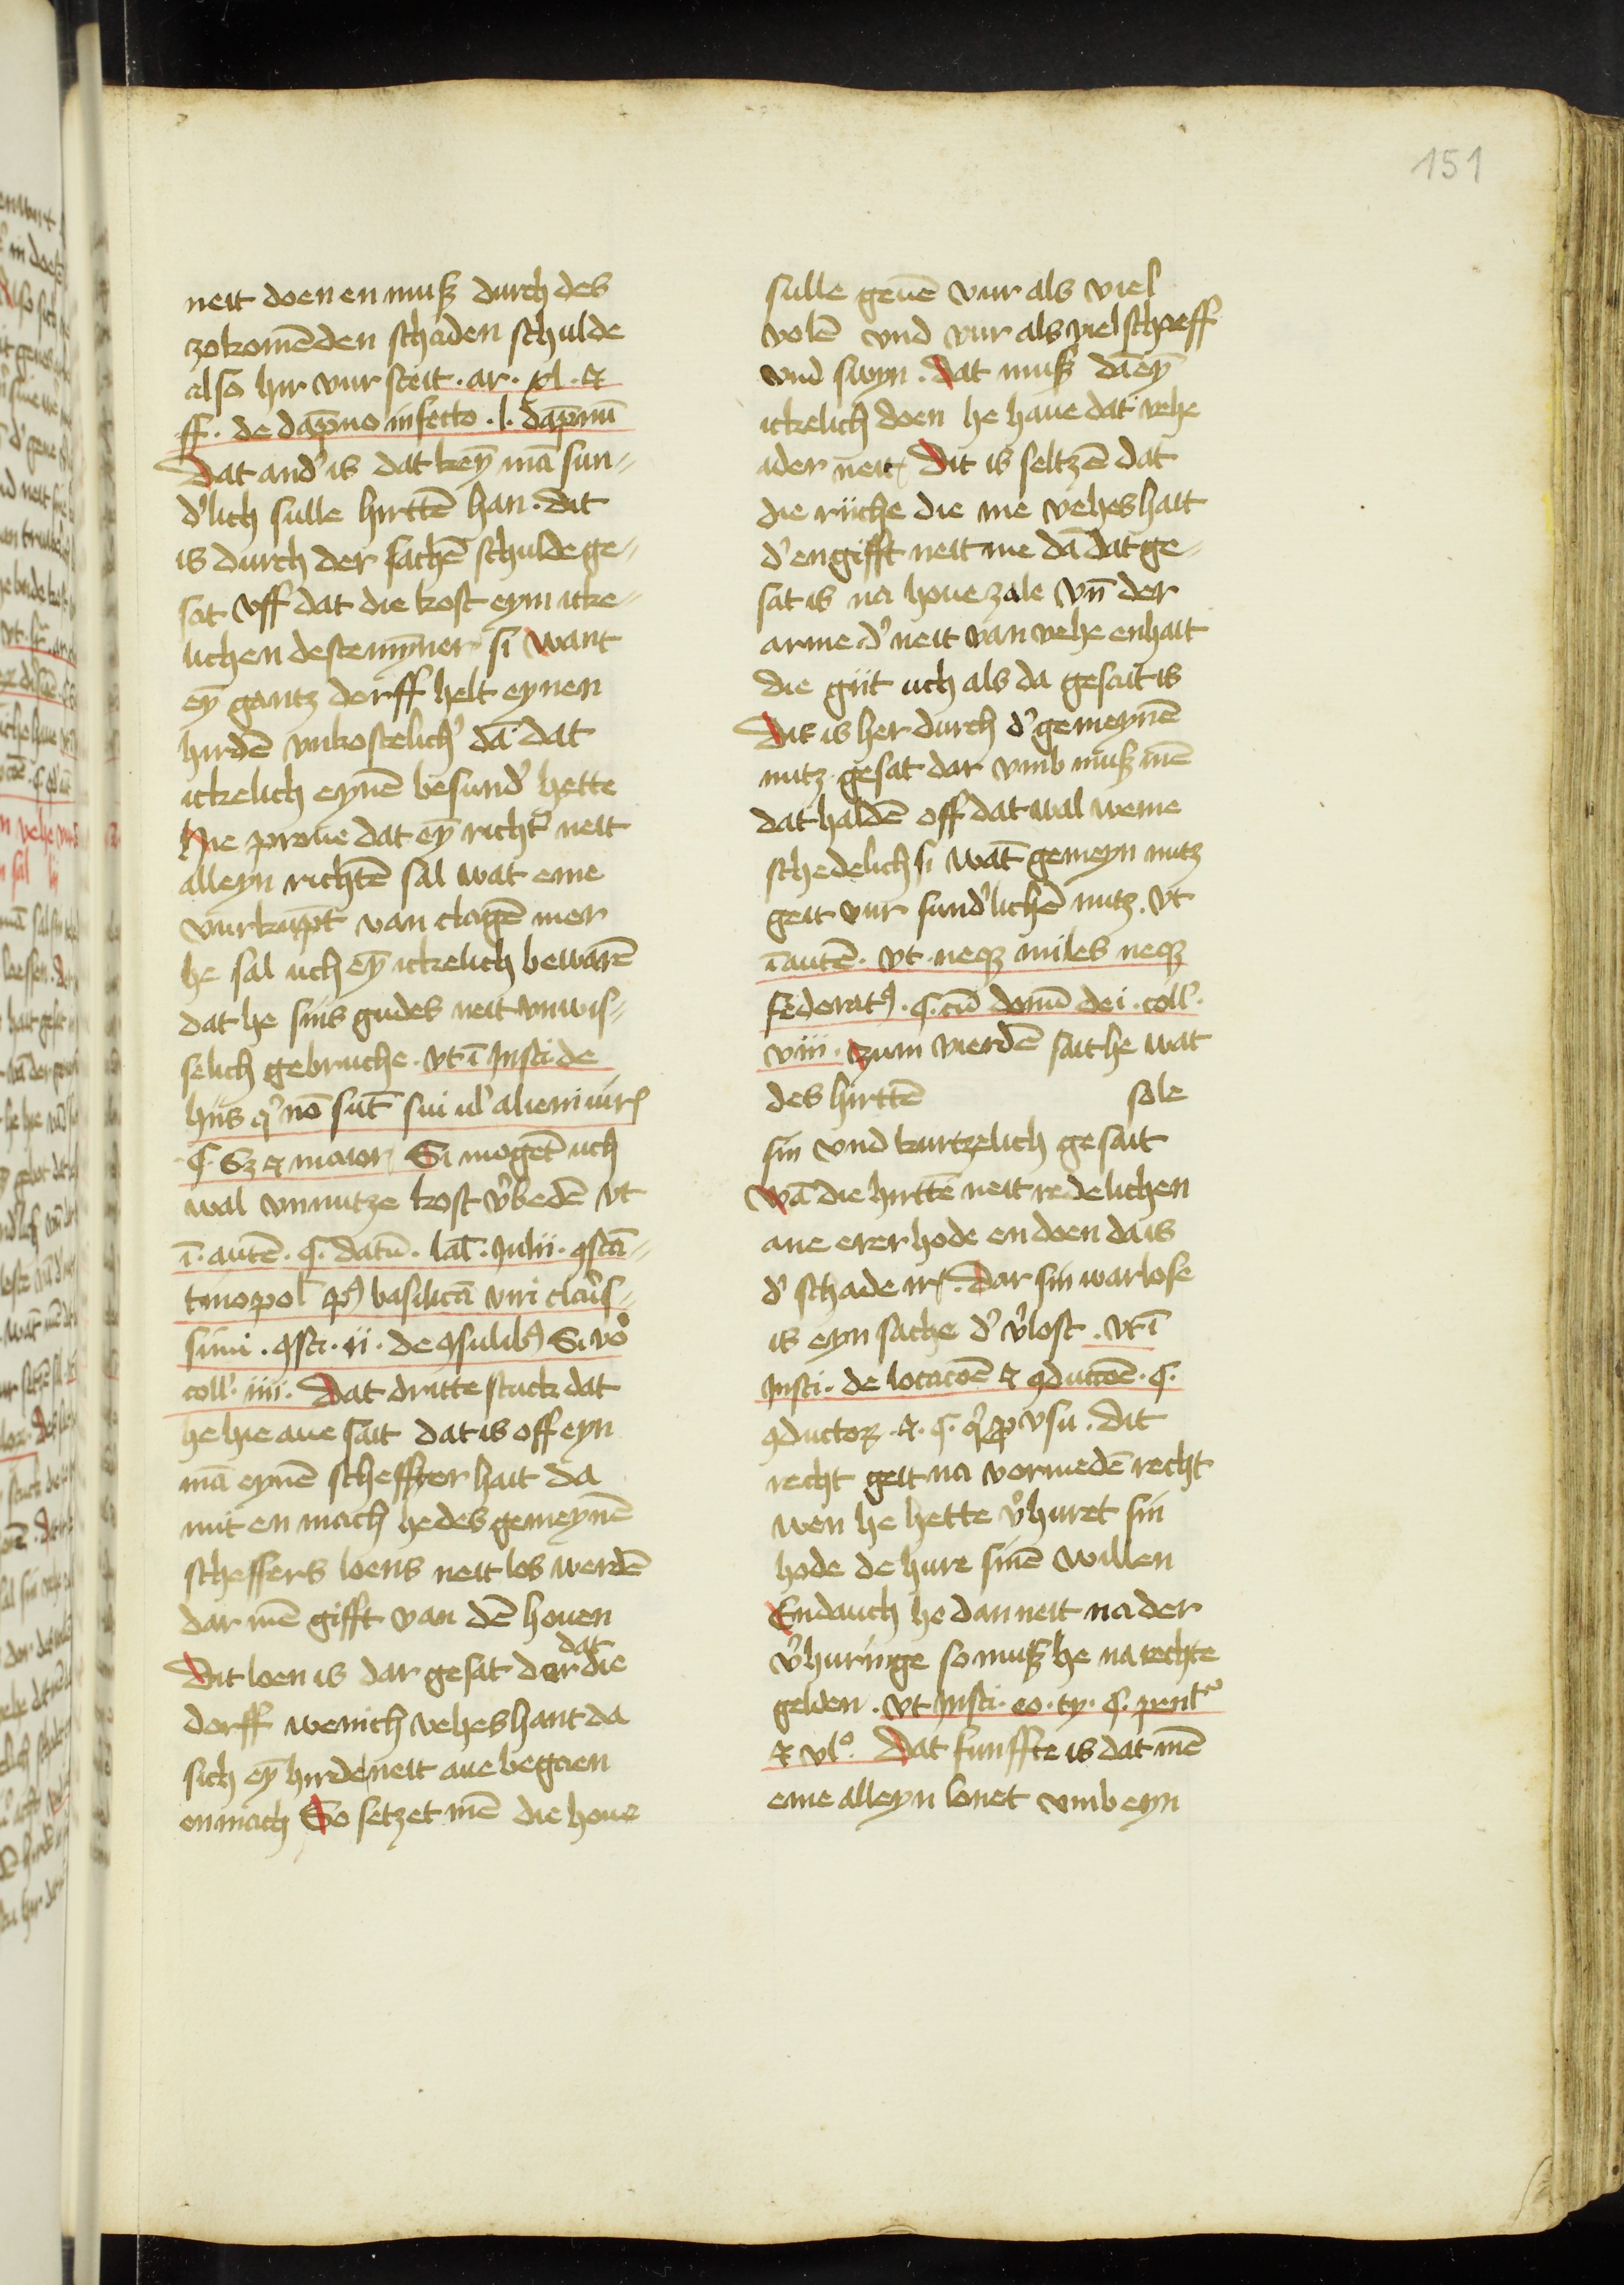 151
neit doen en muß durch des
zokomēden schaden schulde
also hir vur steit . ar . xl . et
ff . de dāpno infecto . l . dāpnū
Dat and' is dat keȳ mā sun-
d'lich sulle hirttē han . dit
is durch der sachē schulde ge-
sat vff dat die kost eym icke-
lichen deste mȳner si want
eȳ gantz dorff helt eynen
hirdē vnkostelich' dā dat
ickelich eynē besund' hette
Hie proue dat eȳ richt' neit
alleyn richtē sal wat eme
vurkūpt van clagē mer
he sal uch eȳ ickelich bewarē
dat he sins gudes neit vnwis-
selich gebruche . vt ī Insti de
hiis q' nō sūt sui ul' alieni iur
¶ Sz et maior Si mogēt uch
wal vnnutze kost v'bedē vt
ī . autē . ¶ . datū . kal . Julii . 9stā-
tinopol p9 basilicā viri claris-
simi . 9sti . ii . de 9sulib9 Si vo
coll' . iiii . Dat dritte stuck dat
he hie ane sait dat is off eyn
mā eynē scheffer hait da
mit en mach he des gemeynē
scheffers loens neit los werdē
dar mē gifft van dē houen
dat
Dit loen is dar gesat dar die
dorff wenich vehes hant da
sich eȳ hirde neit ane begaen
en mach So setzet mē die houe
sulle geuē vur als viel
volē vnd vur als viel schoeff
vnd swyn . dat muß dā eȳ
ickelich doen he haue dat vehe
ader neit Dit is seltzē dat
die riiche die me vehes hait
d' en gifft neit me dā dat ge-
sat is na houe zale vn̄ der
arme d' neit van vehe enhait
die giit uch als da gesait is
Dit is her durch d' gemeynē
nutz gesat dar vmb muß mē
dat haldē off dat wal weme
schedelich si wāt gemeyn nutz
geit vur sund'lichē nutz . vt
ī autē . vt neq3 miles neq3
federat9 . ¶ . cū domū dei . coll' .
viii . zum vierdē sait he wat
des hirttē sole
sin vnd kurtzelich gesait
wā die hirttē neit redelichen
ane erer hode en doen da is
d' schade ir . dar sin warlose
is eyn sache d' v'lost . vt ī
Insti . de locacōe et 9ductōe . ¶ .
9ductor . et . ¶ . q' p vsu . dit
recht geit na vormedē recht
wen he hette v'huret sin
hode de hure sinē willen
Endauch he dan neit na der
v'huringe so muß he na rechte
gelden . vt Insti . eo . ty . ¶ . penlt'
et vl° . Dat funffte is dat mē
eme alleyn lonet vmb eyn